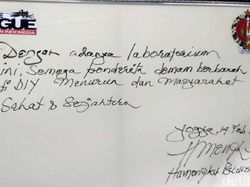 GUE
INDONESIA
Dengan adanya laboratorium
ini, Semoga penderita demam berbarah
di DIY Menurun dan Masyarakat
Sehat & Sejahtera
Yogya, 14 Feb